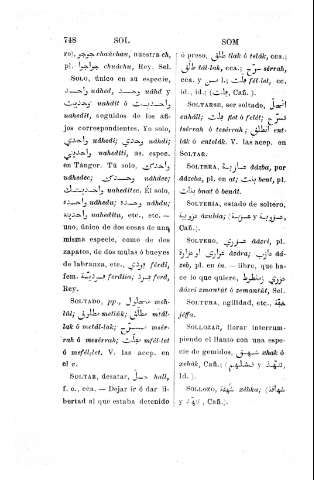 748
SOL
SOM
ro), جوجو chuchchu, nuestra ch,
pl. جواجوا chuáchu, Rey. Sel.
SOLO, único en su especie,
واحد uáhed, وحد uáhd y
وحديت uahdit ó واحديت
uahedit, seguidos de los afi-
jos correspondientes. Yo solo,
وحدي uahdi; واحدي uáhedi y
واحديتي uahedíti, as. espec.
en Tánger. Tú solo, واحدك
uáhedec; وحدك uáhdec y
واحديتك uahedítec. Él solo,
واحده uáhedu; وحده uáhdu;
واحديته uaheditu, etc., etc.—
uno, único de dos cosas de una
misma especie, como de dos
zapatos, de dos mulas ó bueyes
de labranza, etc., فردي férdi,
fem. فردية ferdía; فرد ferd,
Rey.
SOLTADO, pp., محلول meh-
lúl; مطلوق metlúk; مطلق mtál-
lak ó metál-lak; مسرح msér-
rah ó mesérrah; مفلت mfél-let
ó mefél-let. V. las acep. en
el v.
SOLTAR, desatar, حل hall,
f. o., cca. — Dejar ir ó dar li-
bertad al que estaba detenido
ó preso, طلق tlak ó telák, cca.;
طلق tál-lak, cca.; سرح sérrah,
cca. y ل l.; فلت fél-let, cc.
id., id.; (فلت, Cañ.).
SOLTARSE, ser soltado, انحل
enháll; فلت flat ó felát; تسرح
tsérrah ó tesérrah; انطلق ent-
lák ó entelák. V. las acep. en
SOLTAR.
SOLTERA, عازبة áázba, por
áázeba, pl. en at; بنت bent, pl.
بنات bnat ó benát.
SOLTERÍA, estado de soltero,
عزوبية âzubía; (عزبة y عزوبة,
Cañ.).
SOLTERO, عزري âázri, pl.
عزارى ó عزارة âzára; عازب áá-
zeb, pl. en in. — libre, que ha-
ce lo que quiere, عزري زمطوط
âázri zmantót ó zemantót, Sel.
SOLTURA, agilidad, etc., خفة
jéffa.
SOLLOZAR, llorar interrum-
piendo el llanto con una espe-
cie de gemidos, شهق xhak ó
xehák, Cañ.; (تنهد y تشهق,
Id.).
SOLLOZO, شهقة xáhka; (شهاق
y تنهد, Cañ.).